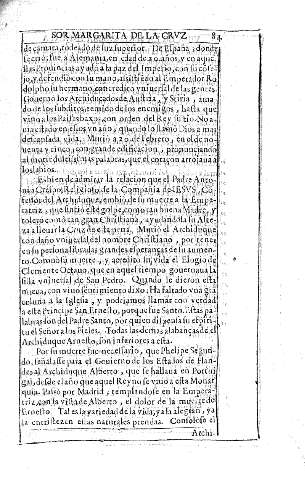 SOR MARGARITA DE LA CRVZ 84
de camara, rodeado de luz superior. De España, donde
se criò, fue a Alemania, en edad de 20. años, y en aque
llas prouincias ayudò a la paz del Imperio, con su côse
jo, y defendiò con su mano, assistiendo al Emperador Ro
dolpho su hermano, con credito vniuersal de las gentes
Gouernò los Archiducados de Austria, y Stiria, ama
do de los subditos, temido de los enemigos, hasta que
vino a los Paises baxos, con orden del Rey su tio. No a
uia citado en ellos vn año, quando lo llamò Dios a mas
descansada guia. Murió a 20. de Febrero, en el de no
uenta y cinco, con grande edificacion, pronunciando
al morir dulcissimas palabras, que el coraçon arrojaua a
los labios.
Es bien de admirar la relacion que el Padre Anto-
nio Crespo, Religioso de la Compañia de IESVS, Co
fessor del Archiduque, embiò de su muerte a la Empera
triz, que sintiò este golpe, como tan buena Madre, y
tolerò como tan grande Christiana, ayudando a su Alte
za a lleuar la Cruz de esta pena. Muriò el Archiduque
con daño vniuersal del nombre Christiano, por tener
en su persona libradas grandes esperanças de su aumen
to. Coronò su muerte, y acreditò su vida el Elogio de
Clemente Octauo, que en aquel tiempo gouernaua la
silla vniuersal de San Pedro. Quando le dieron esta
nueua, con viuo sentimiento dixo: Ha faltado vna grã
coluna a la Iglesia, y podriamos llamar con verdad
a este Principe San Ernesto, porque fue Santo. Estas pa
labras son del Padre Santo, por quien dispensa su espiri
tu el Señor a los Fieles. Todas las demas alabanças de el
Archiduque Arnesto, son inferiores a esta.
Por su muerte fue necessario, que Phelipe Segun-
do, fiàndasse para el Gouierno de los Estados de Flan
des al Archiduque Alberto, que se hallaua en Portu
gal, desde el año que aquel Reyno se vnio a esta Monar
quia. Passò por Madrid, templandose en la Empera-
triz, con la vista de Alberto, el dolor de la muerte de
Ernesto. Tal es la variedad de la vida, ya la alegran, ya
la entristezen estas naturales prendas. Consolòse el
Archi-